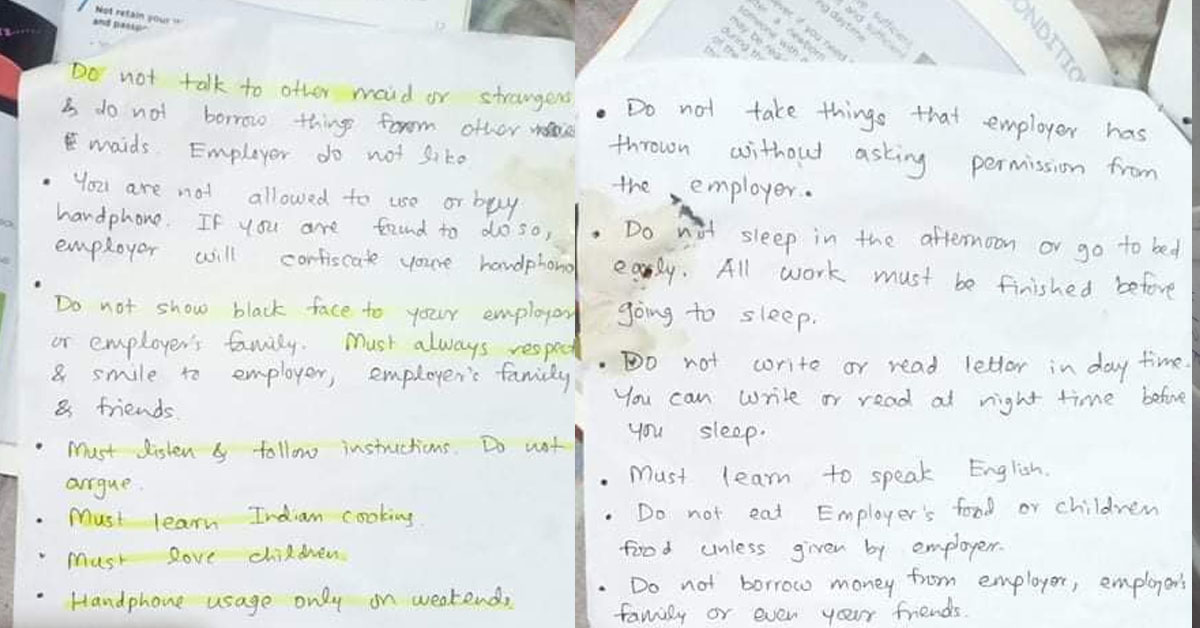 Not retain your
and passp
Do not talk to other maid or strangers
& do not borrow things form other
maids. Employer do not like
• You are not allowed to use or buy
handphone. If you are found to do so,
employer will confiscate youre handphone
•
Do not show black face to your employer
or employer's family. Must always respect
& smile to employer, employer's family
& friends.
• Must listen & follow instructions. Do not
argue.
• Must learn Indian cooking.
• Must love children.
• Handphone usage only on weekends.
CONDITIO
• Do not take things that employer has
thrown without asking permission from
the employer.
• Do not sleep in the afternoon or go to bed
early. All work must be finished before
going to sleep.
• Do not write or read letter in day time.
You can write or read at night time before
you sleep.
• Must learn to speak English.
• Do not eat Employer's food or children
food unless given by employer.
• Do not borrow money from employer, employer's
family or even your friends.